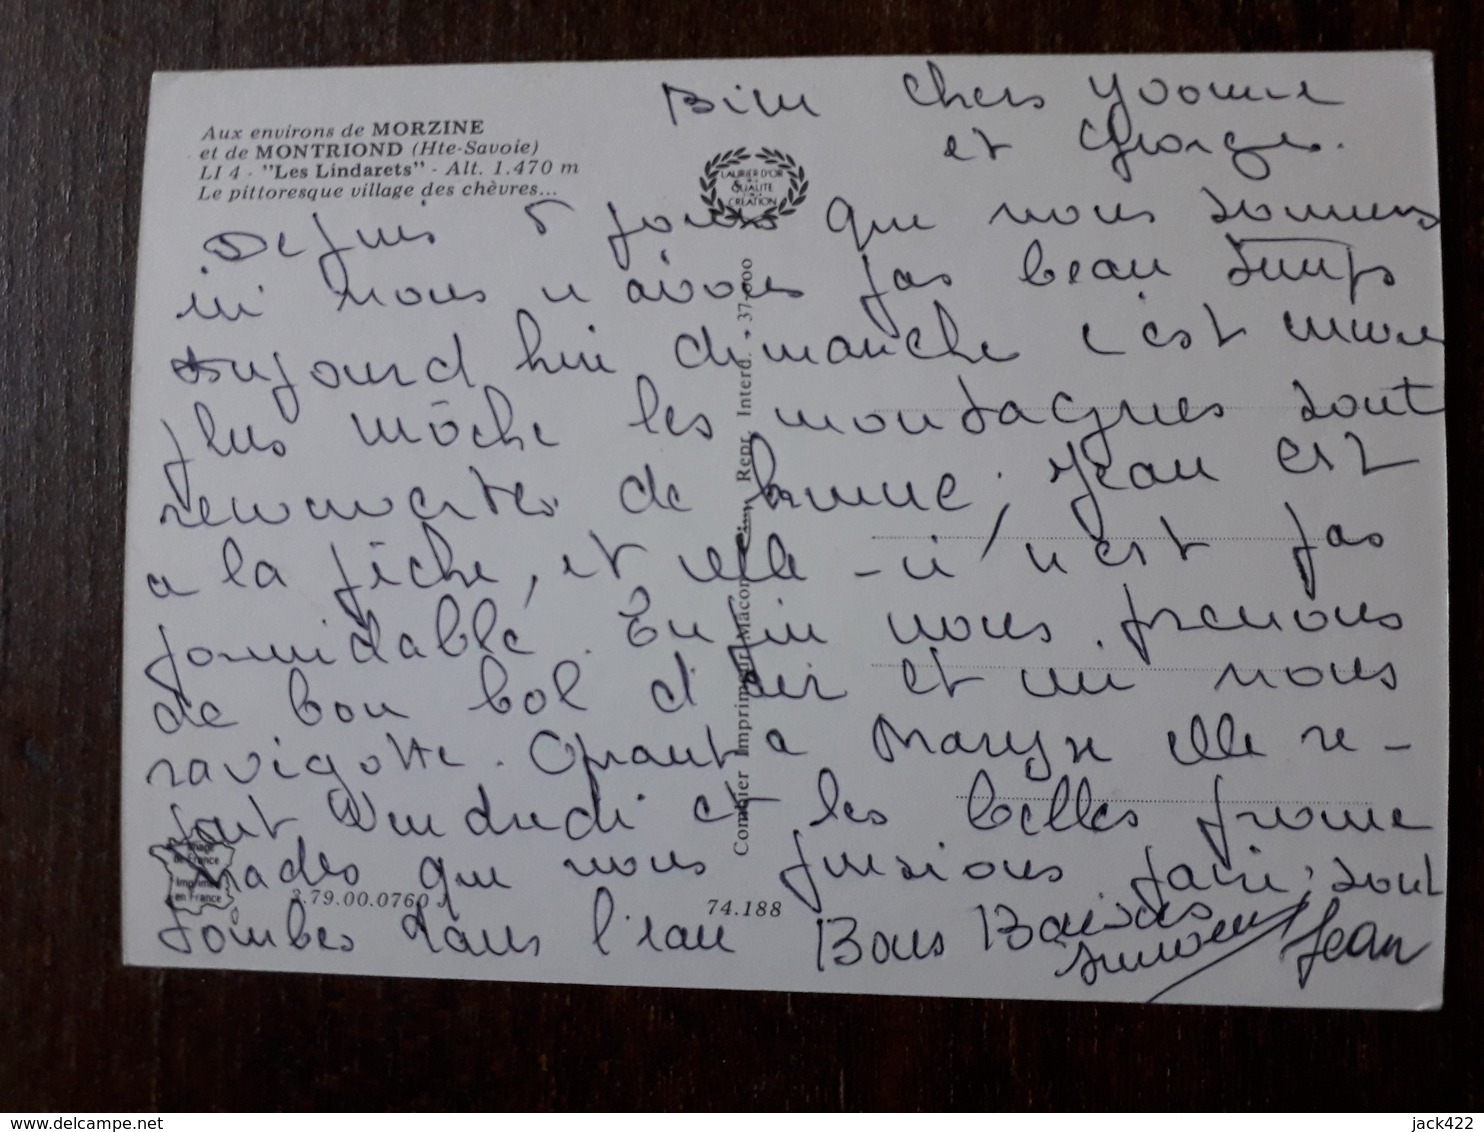 Aux environs de MORZINE
et de MONTRIOND (Hte-Savoie)
LI 4 - "Les Lindarets" - Alt. 1.470 m
Le pittoresque village des chèvres...
LAURIER D'OR
DE LA
QUALITÉ
CRÉATION
Combier Imprimeur Macon Repr. Interd. • 37-000
Image
de France
Imprimé
en France
3.79.00.0760 J
74.188
Bien chers Yvonne
et Georges.
Depuis 5 jours que nous sommes
ici nous n'avons pas beau temps
aujourd'hui dimanche c'est encore
plus moche les montagnes sont
recouvertes de brume; Jean est
a la pêche, et elle-ci n'est pas
formidable. Enfin nous prenons
de bon bol d'air et ici nous
ravigotte. Quant a Maryse elle re-
part Vendredi et les belles prome
nades que nous pensions faire; sont
tombés dans l'eau Bons Baisers
Simone Jean
delcampe.net
jack422